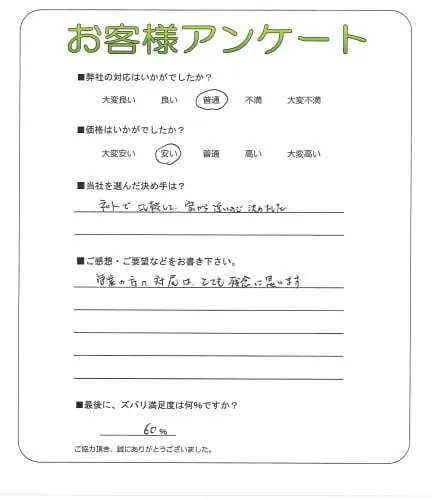 お客様アンケート
■弊社の対応はいかがでしたか？
大変良い 良い 普通 不満 大変不満
■価格はいかがでしたか？
大変安い 安い 普通 高い 大変高い
■当社を選んだ決め手は？
ネットで比較して、家から近いので決めました
■ご感想・ご要望などをお書き下さい。
営業の方の対応は、とても残念に思います
■最後に、ズバリ満足度は何％ですか？
60％
ご協力頂き、誠にありがとうございました。